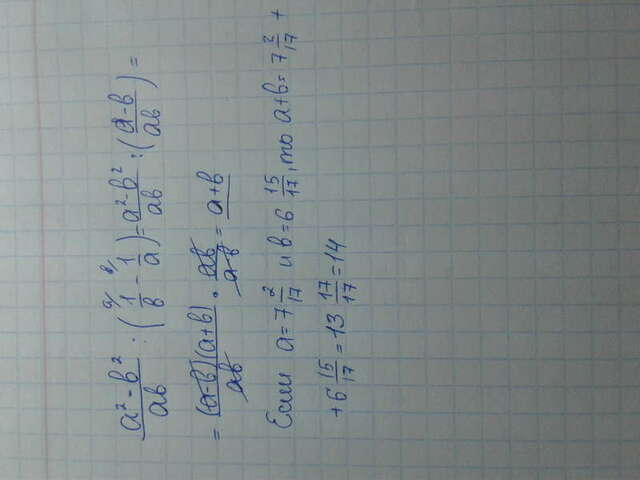 (a² - b²)/(ab) : (ᵃ⁄ 1/b - ᵇ⁄ 1/a) = (a² - b²)/(ab) : ((a - b)/(ab)) =
= ((a-b)(a+b))/(ab) · (ab)/(a-b) = a+b
Если a = 7 2/17 и b = 6 15/17, то a+b = 7 2/17 +
+ 6 15/17 = 13 17/17 = 14